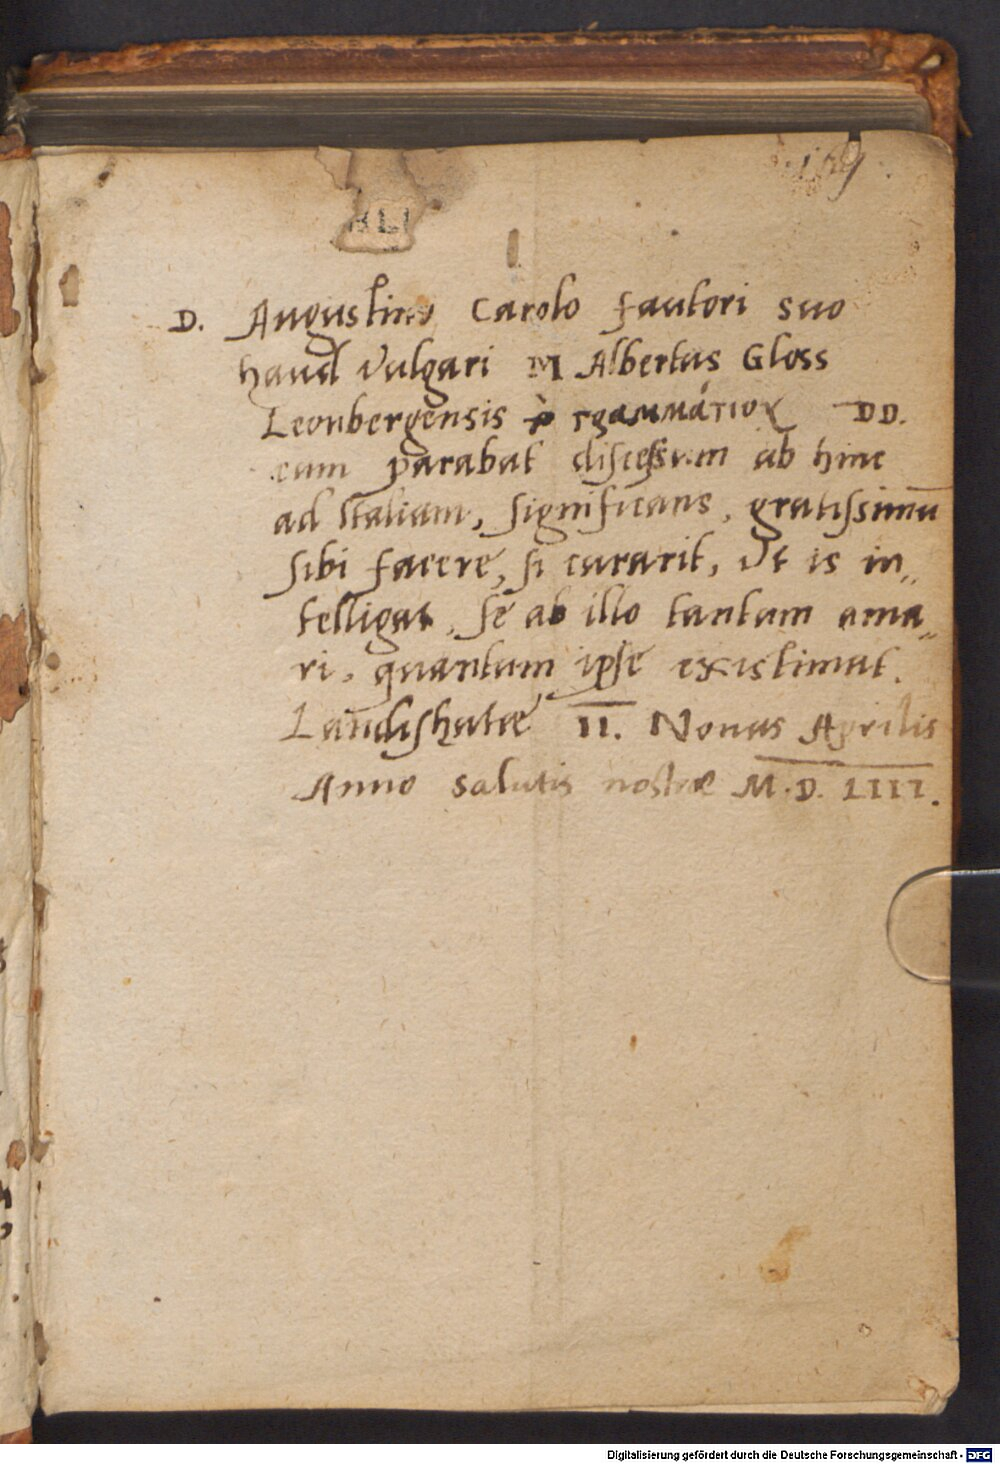 BLI
D. Augustino Carolo fautori suo
haud vulgari M Albertus Gloss
Leonbergensis ὁ γραμμάτιον DD.
cum parabat discessum ab hinc
ad Italiam, significans, gratissimū
sibi facere, si curarit, vt is in„
telligat, se ab illo tantum ama„
ri, quantum ipse existimat.
Landishutæ II. Nonas Aprilis
Anno salutis nostræ M.D. LIIII.
Digitalisierung gefördert durch die Deutsche Forschungsgemeinschaft - DFG